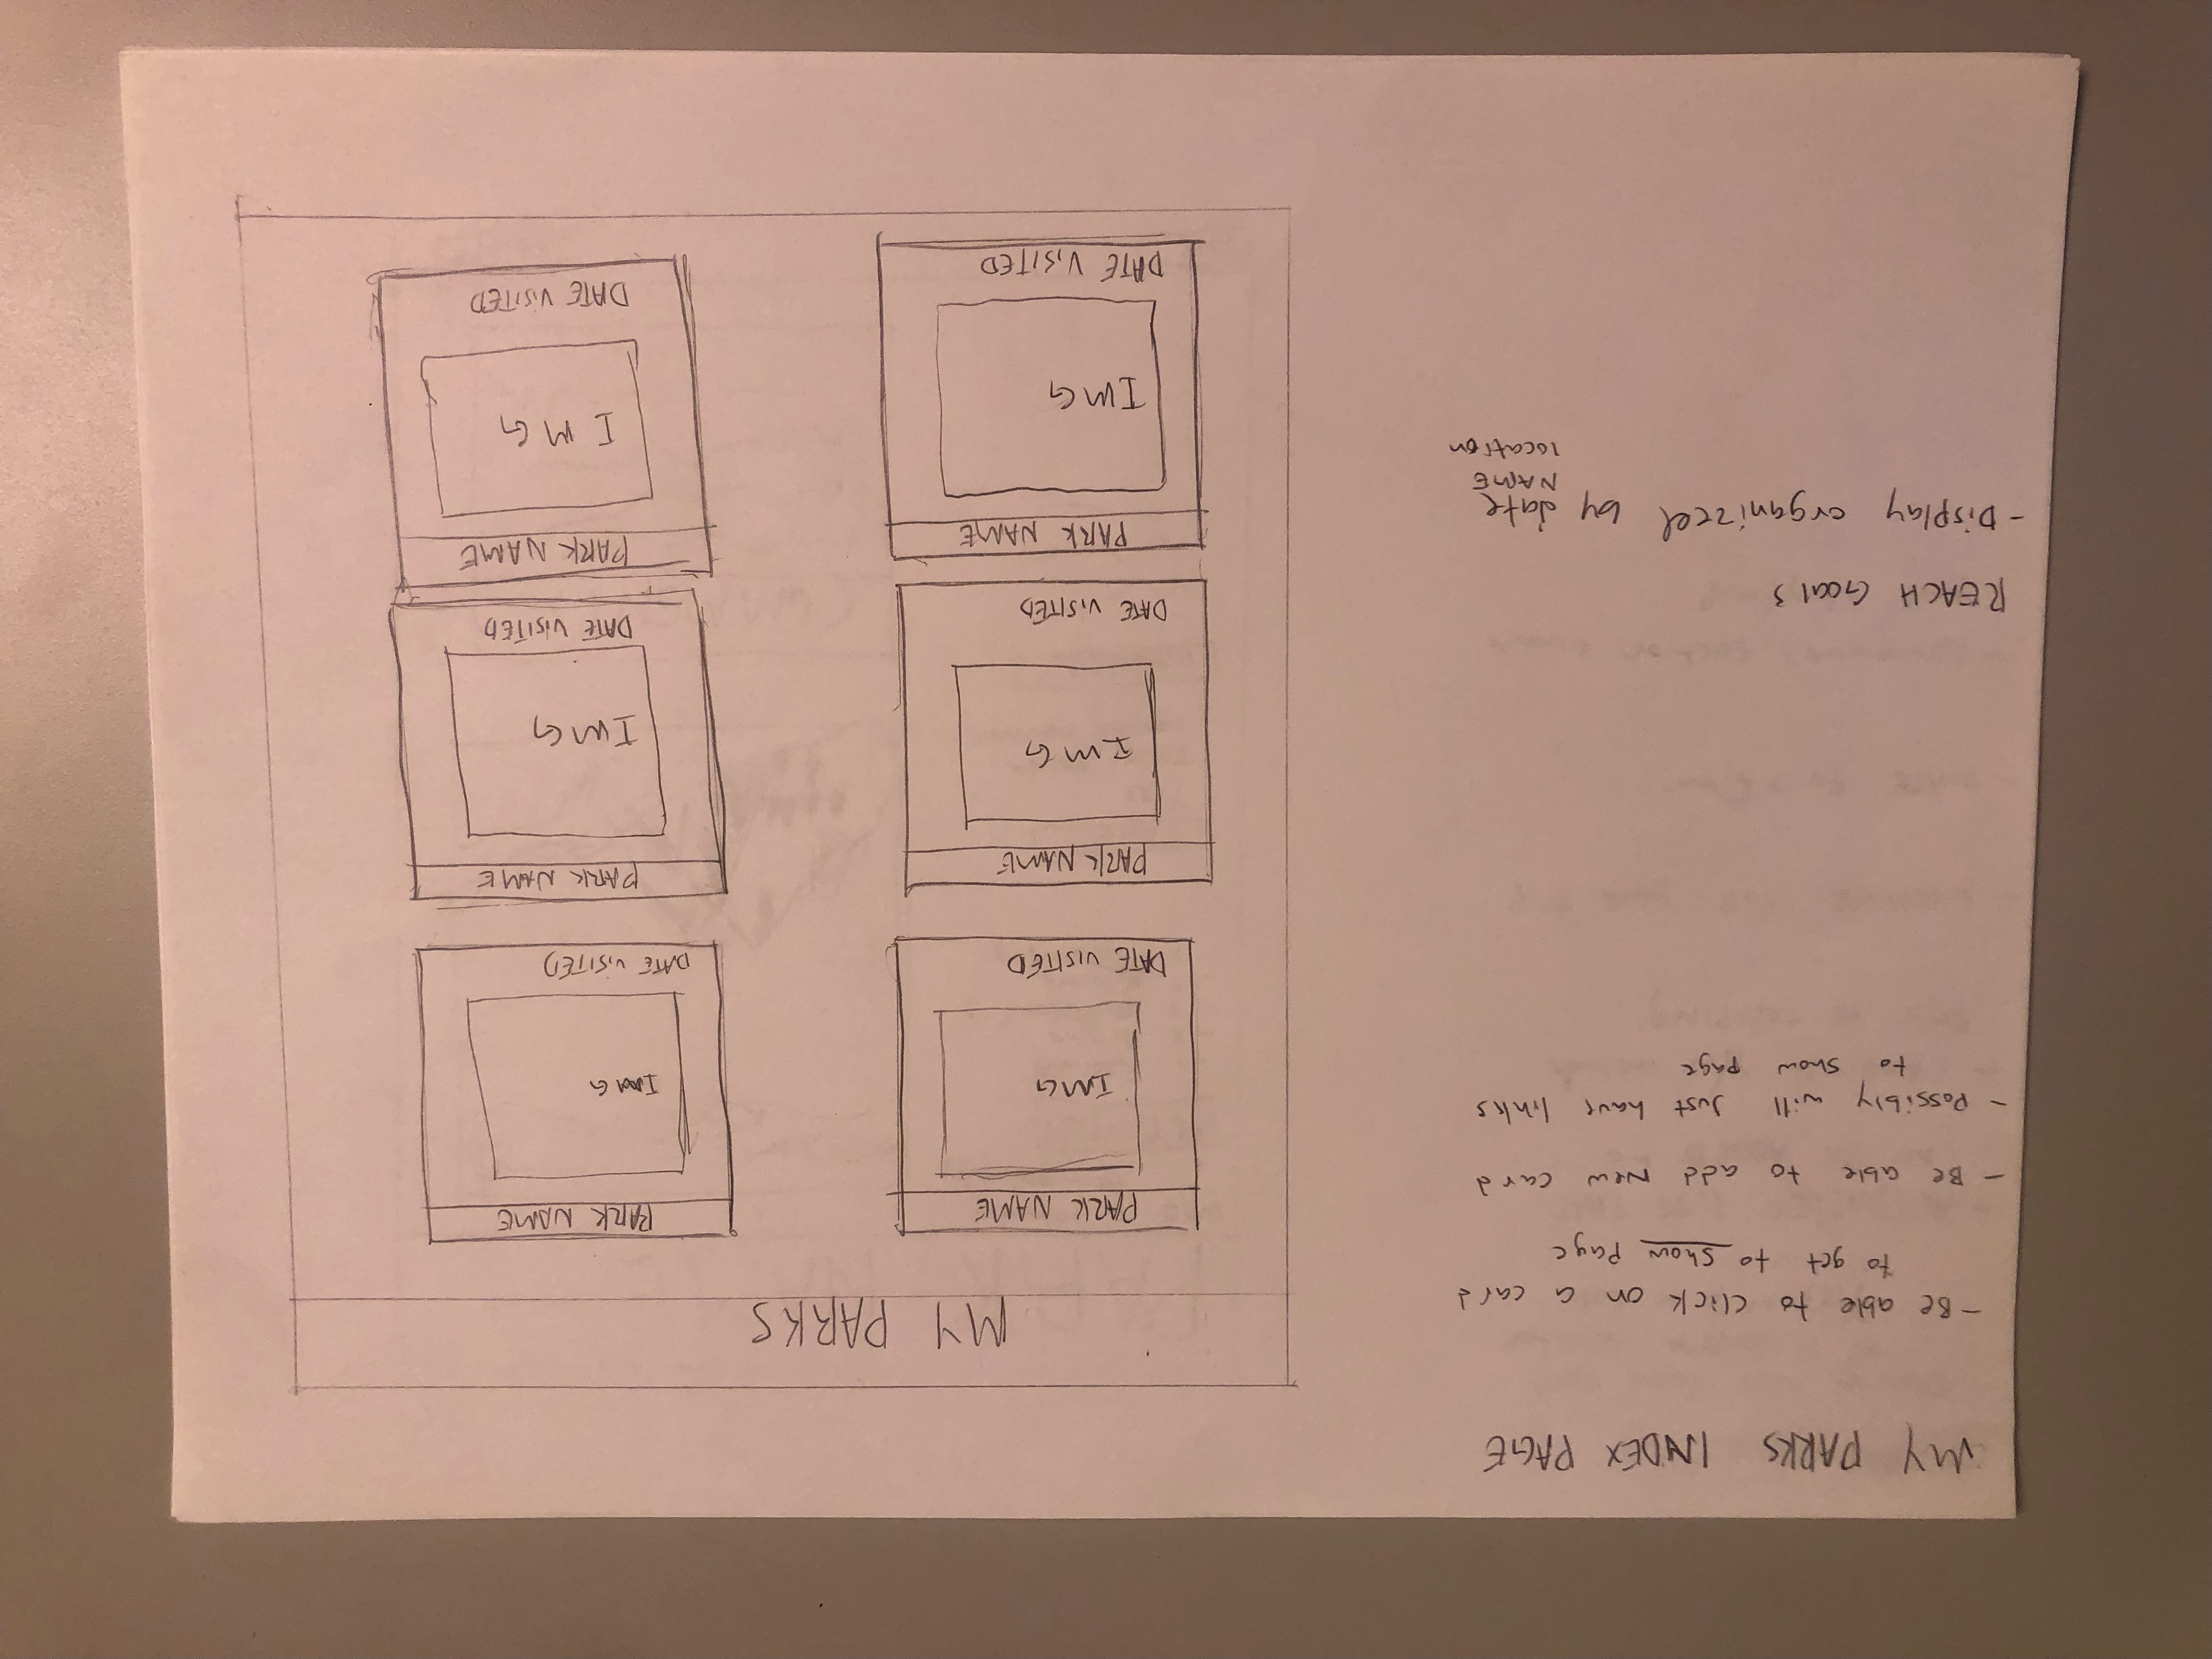 MY PARKS INDEX PAGE
- Be able to click on a card
to get to show page
- Be able to add New card
- Possibly will Just have links
to show page
REACH Goals
- Display organized by date
NAME
location
MY PARKS
PARK NAME
IMG
DATE VISITED
PARK NAME
IMG
DATE VISITED
PARK NAME
IMG
DATE VISITED
PARK NAME
IMG
DATE VISITED
PARK NAME
IMG
DATE VISITED
PARK NAME
IMG
DATE VISITED